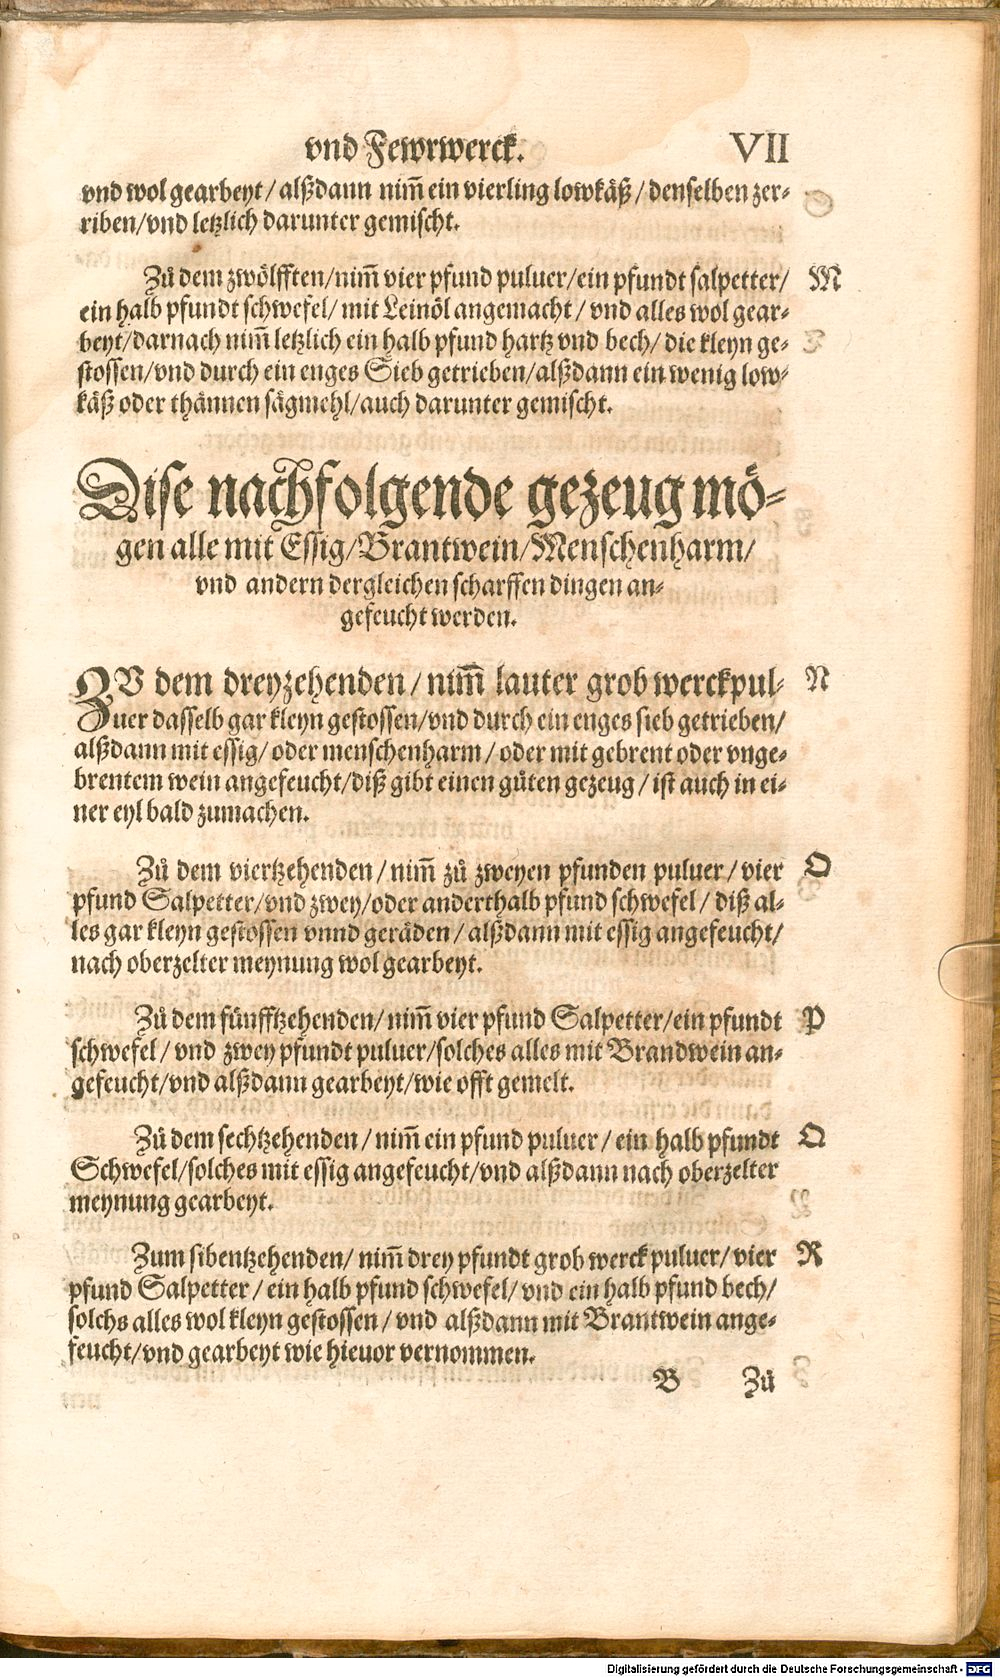 vnd Fewrwerck. VII
vnd wol gearbeyt / alßdann nim̃ ein vierling lowkäß / denselben zer-
riben/vnd letzlich darunter gemischt.
Zů dem zwölfften/nim̃ vier pfund puluer/ein pfundt salpetter/ M
ein halb pfundt schwefel/ mit Leinöl angemacht / vnd alles wol gear-
beyt/darnach nim̃ letzlich ein halb pfund hartz vnd bech/ die kleyn ge-
stossen/vnd durch ein enges Sieb getrieben/alßdann ein wenig low-
käß oder thännen sägmehl/auch darunter gemischt.
Dise nachfolgende gezeug mö-
gen alle mit Essig/Brantwein/Menschenharm/
vnd andern dergleichen scharffen dingen an-
gefeucht werden.
ZV dem dreyzehenden / nim̃ lauter grob werckpul- N
uer dasselb gar kleyn gestossen/vnd durch ein enges sieb getrieben/
alßdann mit essig/ oder menschenharm / oder mit gebrent oder vnge-
brentem wein angefeucht/diß gibt einen gůten gezeug / ist auch in ei-
ner eyl bald zumachen.
Zů dem viertzehenden / nim̃ zů zweyen pfunden puluer / vier O
pfund Salpetter/vnd zwey/oder anderthalb pfund schwefel / diß al-
les gar kleyn gestossen vnnd geräden / alßdann mit essig angefeucht/
nach oberzelter meynung wol gearbeyt.
Zů dem fünfftzehenden/ nim̃ vier pfund Salpetter/ein pfundt P
schwefel / vnd zwey pfundt puluer/solches alles mit Brandwein an-
gefeucht/vnd alßdann gearbeyt/wie offt gemelt.
Zů dem sechtzehenden / nim̃ ein pfund puluer / ein halb pfundt Q
Schwefel/solches mit essig angefeucht/vnd alßdann nach oberzelter
meynung gearbeyt.
Zum sibentzehenden/ nim̃ drey pfundt grob werck puluer/ vier R
pfund Salpetter / ein halb pfund schwefel/ vnd ein halb pfund bech/
solchs alles wol kleyn gestossen / vnd alßdann mit Brantwein ange-
feucht/vnd gearbeyt wie hieuor vernommen.
B Zů
Digitalisierung gefördert durch die Deutsche Forschungsgemeinschaft - DFG